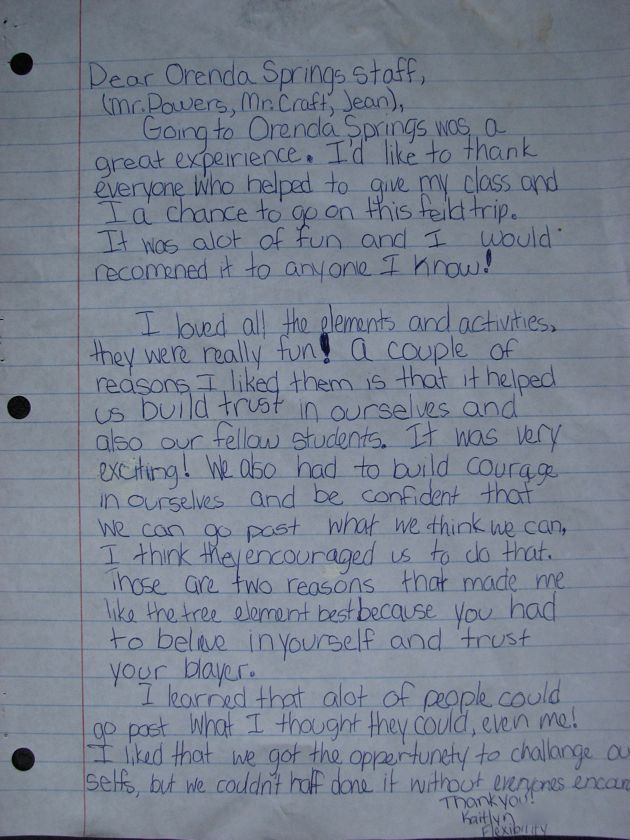 Dear Orenda Springs staff,
(Mr. Powers, Mr. Craft, Jean),
Going to Orenda Springs was a
great expeirience. I'd like to thank
everyone who helped to give my class and
I a chance to go on this feild trip.
It was alot of fun and I would
recomened it to anyone I know!
I loved all the elements and activities,
they were really fun! A couple of
reasons I liked them is that it helped
us build trust in ourselves and
also our fellow students. It was very
exciting! We also had to build courage
in ourselves and be confident that
we can go past what we think we can,
I think they encouraged us to do that.
Those are two reasons that made me
like the tree element best because you had
to believe in yourself and trust
your blayer.
I learned that alot of people could
go past what I thought they could, even me!
I liked that we got the oppertunety to challange ou
selfs, but we couldn't haff done it without everyones encour
Thankyou!
Kaitlyn
Flexibility